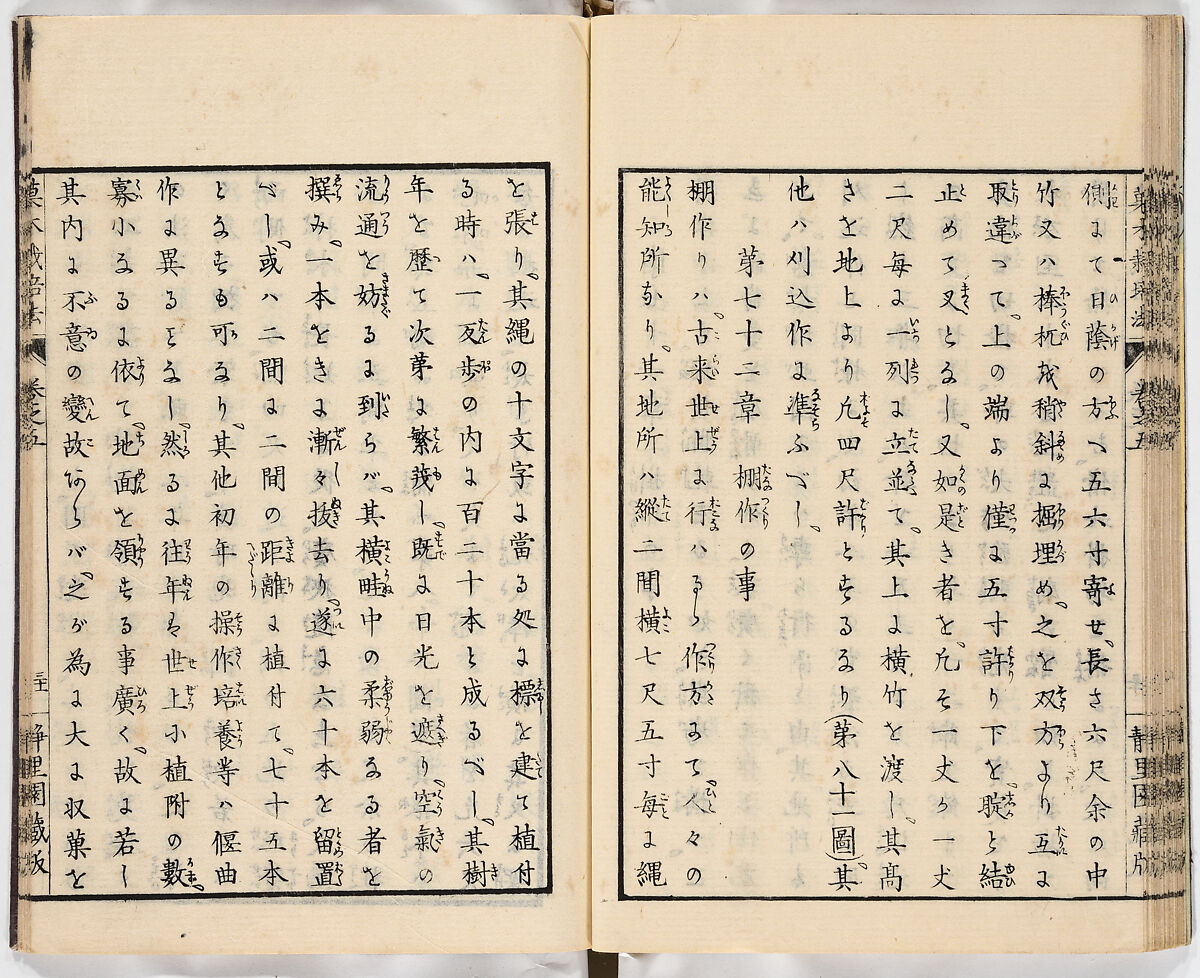 菓木栽培法 巻之五 静里園蔵版
側にて日蔭の方へ五六寸寄せ、長さ六尺余の中
竹又ハ棒杭を稍斜に掘埋め、之を双方より互に
取違へて、上の端より僅に五寸許り下を、腚と結
止めて叉となし、又如是き者を、凡そ一丈か一丈
二尺毎に一列に立並て、其上に横竹を渡し、其髙
さを地上より凡四尺許とするなり(第八十一圖)、其
他ハ刈込作に準ふべし、
第七十二章 棚作の事
棚作りハ、古来世上に行ハるゝ作方にて、人々の
能知所なり、其地所ハ縱二間横七尺五寸毎に縄
を張り、其縄の十文字に當る処に標を建て植付
る時ハ、一反歩の内に百二十本と成るべし、其樹
年を歴て次第に繁茂し、既に日光を遮り、空氣の
流通を妨るに到らば、其横畦中の柔弱なる者を
撰み、一本をきに漸々抜去り、遂に六十本を留置
べし、或ハ二間に二間の距離に植付て、七十五本
となすも可なり、其他初年の操作培養等ハ偃曲
作に異るとなし、然るに往年は世上小植附の數、
寡小なるに依て、地面を領する事廣く、故に若し
其内に不意の變故あらバ、之が為に大に収菓を
菓木栽培法 巻之五 三十一 静里園蔵版